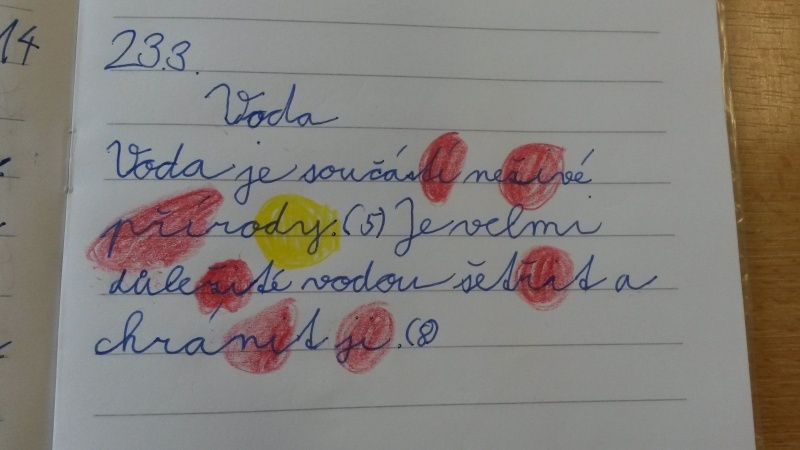 14
23.3.
Voda
Voda je součástí neživé
přírody.(5) Je velmi
důležité vodou šetřit a
chránit ji.(8)